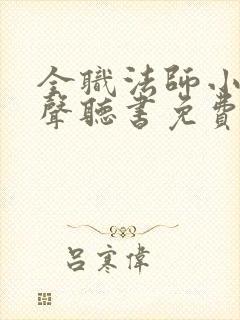 全職法師小
聲聽書免費
呂寒偉